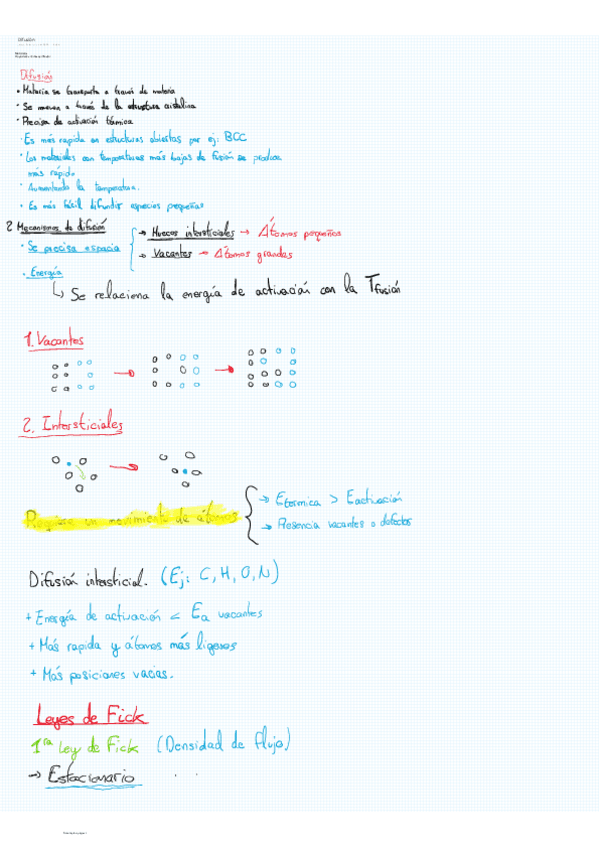 Difusión
Difusión
• Materia se transporta a través de materia
• Se mueven a través de la estructura cristalina
• Precisa de activación térmica
• Es más rapida en estructuras abiertas por ej: BCC
• Los materiales con temperaturas más bajas de fusión se produce
más rápido
• Aumentando la temperatura.
• Es más fácil difundir especies pequeñas
2 Mecanismos de difusión
→ Huecos intersticiales → Átomos pequeños
• Se precisa espacio
→ Vacantes → Átomos grandes
• Energía
↳ Se relaciona la energía de activación con la Tfusión
1. Vacantes
2. Intersticiales
→ Etermica > Eactivación
Requiere un movimiento de átomos
→ Presencia vacantes o defectos
Difusión intersticial. (Ej: C, H, O, N)
+ Energía de activación < Ea vacantes
+ Más rapida y átomos más ligeros
+ Más posiciones vacias.
Leyes de Fick
1ra Ley de Fick (Densidad de flujo)
→ Estacionario